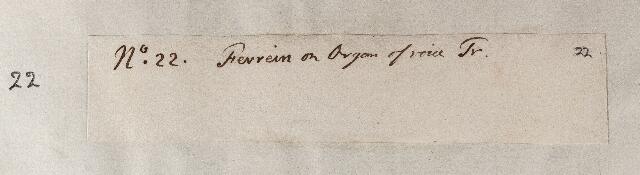 Nº. 22. Ferrein on Organ of voice Tr. 22
22